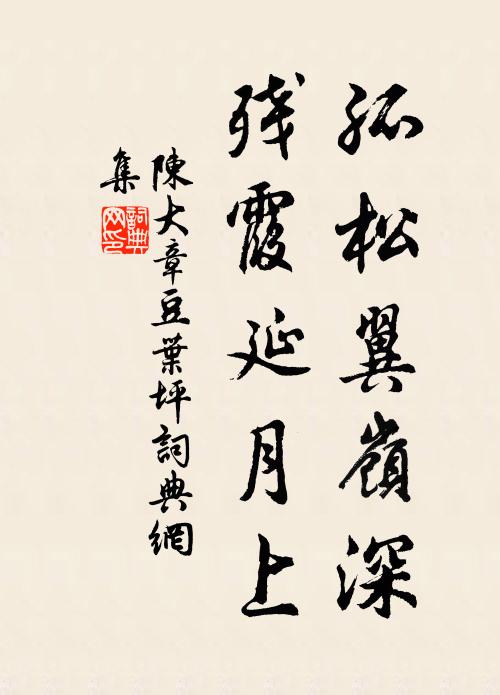 孤松翼嶺深
残霞延月上
陳大章豆葉坪詞典網
集
詞典网印